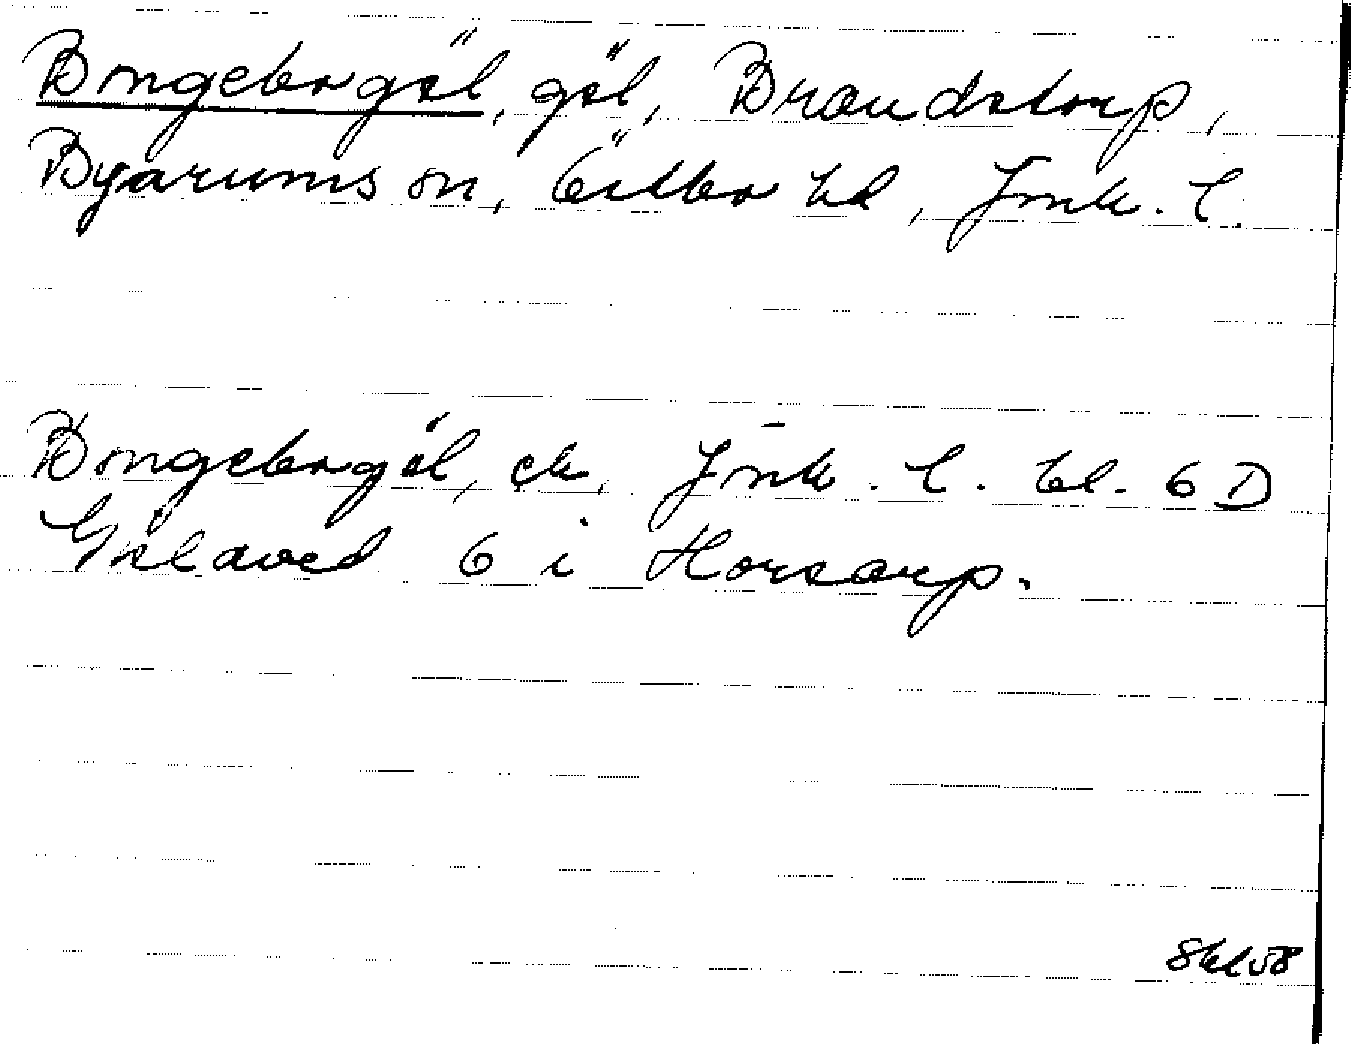 Bongebogöl, göl, Brandstorp,
Byarums sn, Östbo hd, Jönk. l.
Bongebogöl, ek, Jönk. l. bl. 6 D
Gislaved 6 i Horsarp.